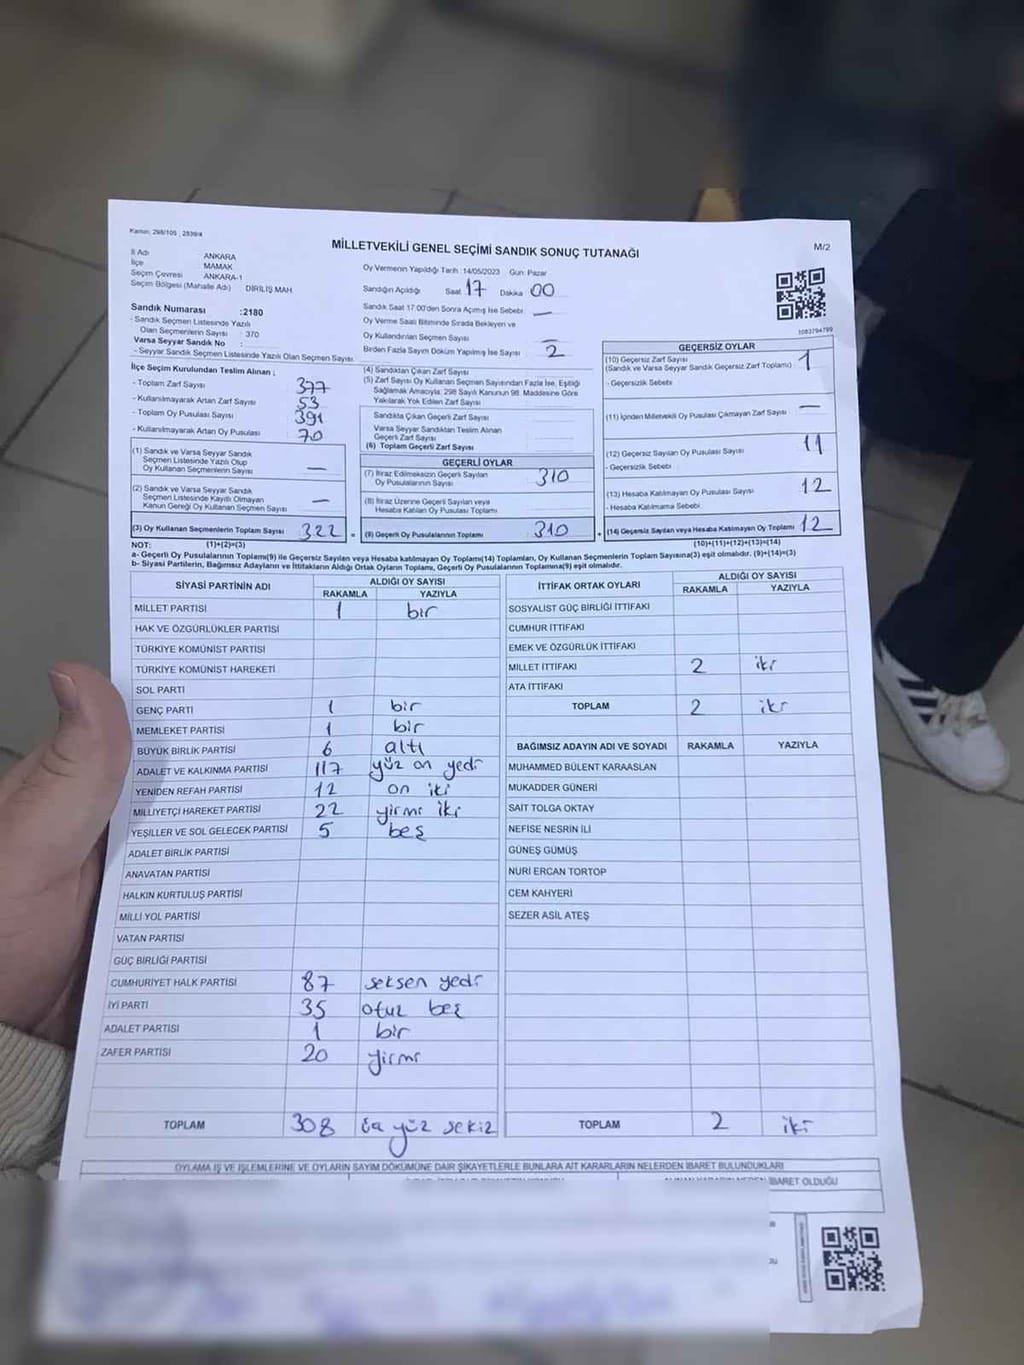 Kanun: 298/105 , 2839/4
MİLLETVEKİLİ GENEL SEÇİMİ SANDIK SONUÇ TUTANAĞI
M/2
İl Adı : ANKARA
İlçe : MAMAK
Seçim Çevresi : ANKARA-1
Seçim Bölgesi (Mahalle Adı) : DİRİLİŞ MAH
Sandık Numarası :2180
- Sandık Seçmen Listesinde Yazılı
Olan Seçmenlerin Sayısı : 370
Varsa Seyyar Sandık No :
- Seyyar Sandık Seçmen Listesinde Yazılı Olan Seçmen Sayısı
İlçe Seçim Kurulundan Teslim Alınan ;
- Toplam Zarf Sayısı 377
- Kullanılmayarak Artan Zarf Sayısı 53
- Toplam Oy Pusulası Sayısı 391
- Kullanılmayarak Artan Oy Pusulası 70
(1) Sandık ve Varsa Seyyar Sandık
Seçmen Listesinde Yazılı Olup
Oy Kullanan Seçmenlerin Sayısı —
(2) Sandık ve Varsa Seyyar Sandık
Seçmen Listesinde Kayıtlı Olmayan
Kanun Gereği Oy Kullanan Seçmen Sayısı —
(3) Oy Kullanan Seçmenlerin Toplam Sayısı 322
Oy Vermenin Yapıldığı Tarih :14/05/2023 Gün: Pazar
Sandığın Açıldığı Saat 17 Dakika 00
Sandık Saat 17:00'den Sonra Açılmış İse Sebebi —
Oy Verme Saati Bitiminde Sırada Bekleyen ve
Oy Kullandırılan Seçmen Sayısı —
Birden Fazla Sayım Döküm Yapılmış İse Sayısı 2
(4) Sandıktan Çıkan Zarf Sayısı
(5) Zarf Sayısı Oy Kullanan Seçmen Sayısından Fazla İse, Eşitliği
Sağlamak Amacıyla; 298 Sayılı Kanunun 98. Maddesine Göre
Yakılarak Yok Edilen Zarf Sayısı
Sandıkta Çıkan Geçerli Zarf Sayısı
Varsa Seyyar Sandıktan Teslim Alınan
Geçerli Zarf Sayısı
(6) Toplam Geçerli Zarf Sayısı
GEÇERLİ OYLAR
(7) İtiraz Edilmeksizin Geçerli Sayılan
Oy Pusulalarının Sayısı 310
(8) İtiraz Üzerine Geçerli Sayılan veya
Hesaba Katılan Oy Pusulası Toplamı
= (9) Geçerli Oy Pusulalarının Toplamı 310 +
1083794799
GEÇERSİZ OYLAR
(10) Geçersiz Zarf Sayısı 1
(Sandık ve Varsa Seyyar Sandık Geçersiz Zarf Toplamı)
- Geçersizlik Sebebi
(11) İçinden Milletvekili Oy Pusulası Çıkmayan Zarf Sayısı —
(12) Geçersiz Sayılan Oy Pusulası Sayısı 11
- Geçersizlik Sebebi
(13) Hesaba Katılmayan Oy Pusulası Sayısı 12
- Hesaba Katılmama Sebebi
(14) Geçersiz Sayılan veya Hesaba Katılmayan Oy Toplamı 12
NOT: (1)+(2)=(3) (10)+(11)+(12)+(13)=(14)
a- Geçerli Oy Pusulalarının Toplamı(9) ile Geçersiz Sayılan veya Hesaba katılmayan Oy Toplamı(14) Toplamları, Oy Kullanan Seçmenlerin Toplam Sayısına(3) eşit olmalıdır. (9)+(14)=(3)
b- Siyasi Partilerin, Bağımsız Adayların ve İttifakların Aldığı Ortak Oyların Toplamı, Geçerli Oy Pusulalarının Toplamına(9) eşit olmalıdır.
SİYASİ PARTİNİN ADI ALDIĞI OY SAYISI
RAKAMLA YAZIYLA
MİLLET PARTİSİ 1 bir
HAK VE ÖZGÜRLÜKLER PARTİSİ
TÜRKİYE KOMÜNİST PARTİSİ
TÜRKİYE KOMÜNİST HAREKETİ
SOL PARTİ
GENÇ PARTİ 1 bir
MEMLEKET PARTİSİ 1 bir
BÜYÜK BİRLİK PARTİSİ 6 altı
ADALET VE KALKINMA PARTİSİ 117 yüz on yedi
YENİDEN REFAH PARTİSİ 12 on iki
MİLLİYETÇİ HAREKET PARTİSİ 22 yirmi iki
YEŞİLLER VE SOL GELECEK PARTİSİ 5 beş
ADALET BİRLİK PARTİSİ
ANAVATAN PARTİSİ
HALKIN KURTULUŞ PARTİSİ
MİLLİ YOL PARTİSİ
VATAN PARTİSİ
GÜÇ BİRLİĞİ PARTİSİ
CUMHURİYET HALK PARTİSİ 87 seksen yedi
İYİ PARTİ 35 otuz beş
ADALET PARTİSİ 1 bir
ZAFER PARTİSİ 20 yirmi
TOPLAM 308 yüz sekiz
İTTİFAK ORTAK OYLARI ALDIĞI OY SAYISI
RAKAMLA YAZIYLA
SOSYALİST GÜÇ BİRLİĞİ İTTİFAKI
CUMHUR İTTİFAKI
EMEK VE ÖZGÜRLÜK İTTİFAKI
MİLLET İTTİFAKI 2 iki
ATA İTTİFAKI
TOPLAM 2 iki
BAĞIMSIZ ADAYIN ADI VE SOYADI RAKAMLA YAZIYLA
MUHAMMED BÜLENT KARAASLAN
MUKADDER GÜNERİ
SAİT TOLGA OKTAY
NEFİSE NESRİN İLİ
GÜNEŞ GÜMÜŞ
NURİ ERCAN TORTOP
CEM KAHYERİ
SEZER ASİL ATEŞ
TOPLAM 2 iki
OYLAMA İŞ VE İŞLEMLERİNE VE OYLARIN SAYIM DÖKÜMÜNE DAİR ŞİKAYETLERLE BUNLARA AİT KARARLARIN NELERDEN İBARET BULUNDUKLARI
İBARET OLDUĞU